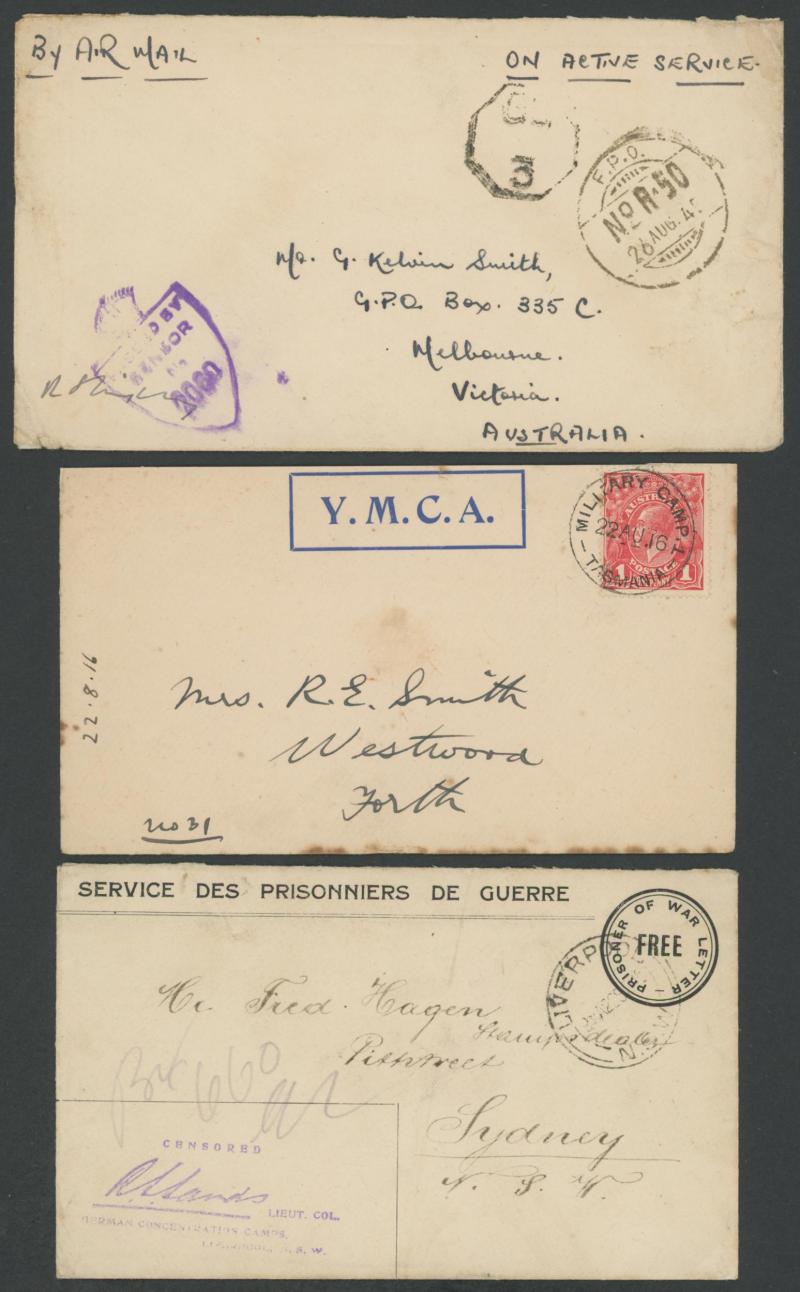 By AIR MAIL
ON ACTIVE SERVICE.
3
F.P.O.
No R-50
26 AUG. 45
Mr. G. Kelvin Smith,
G.P.O. Box. 335 C.
Melbourne.
Victoria.
AUSTRALIA.
BY
CENSOR
No
2000
Y.M.C.A.
MILITARY CAMP. 1
22 AU. 16
TASMANIA
AUSTRALIA
1 POSTAGE 1
22.8.16
Mrs. R.E. Smith
Westwood
Forth
no 31
SERVICE DES PRISONNIERS DE GUERRE
PRISONER OF WAR LETTER
FREE
LIVERPOOL
N.S.W.
Mr Fred. Hagen
Stampsdealer
Pittstreet
Sydney
N. S. W.
CENSORED
R.S. Sands
LIEUT. COL.
GERMAN CONCENTRATION CAMPS,
LIVERPOOL, N. S. W.